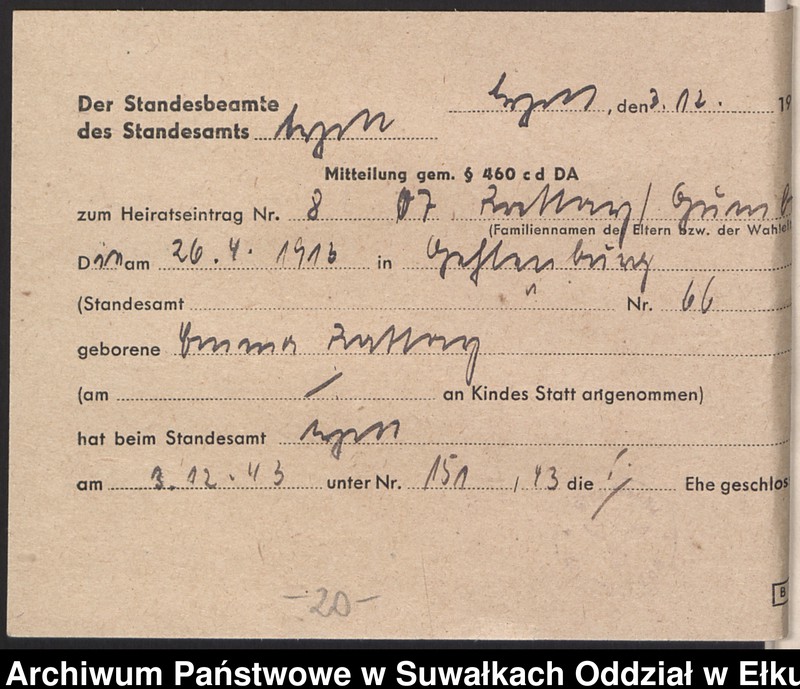 Der Standesbeamte
des Standesamts Lyck
Lyck, den 3. 12. 19
Mitteilung gem. § 460 c d DA
zum Heiratseintrag Nr. 8 07 Rattay /
(Familiennamen der Eltern bzw. der Wahlelt
Die am 26. 4. 1913 in Gehlenburg
(Standesamt " Nr. 66
geborene Emma Rattay
(am / an Kindes Statt angenommen)
hat beim Standesamt Lyck
am 3. 12. 43 unter Nr. 151 / 43 die Ehe geschlos
B
-20-
Archiwum Państwowe w Suwałkach Oddział w Ełku